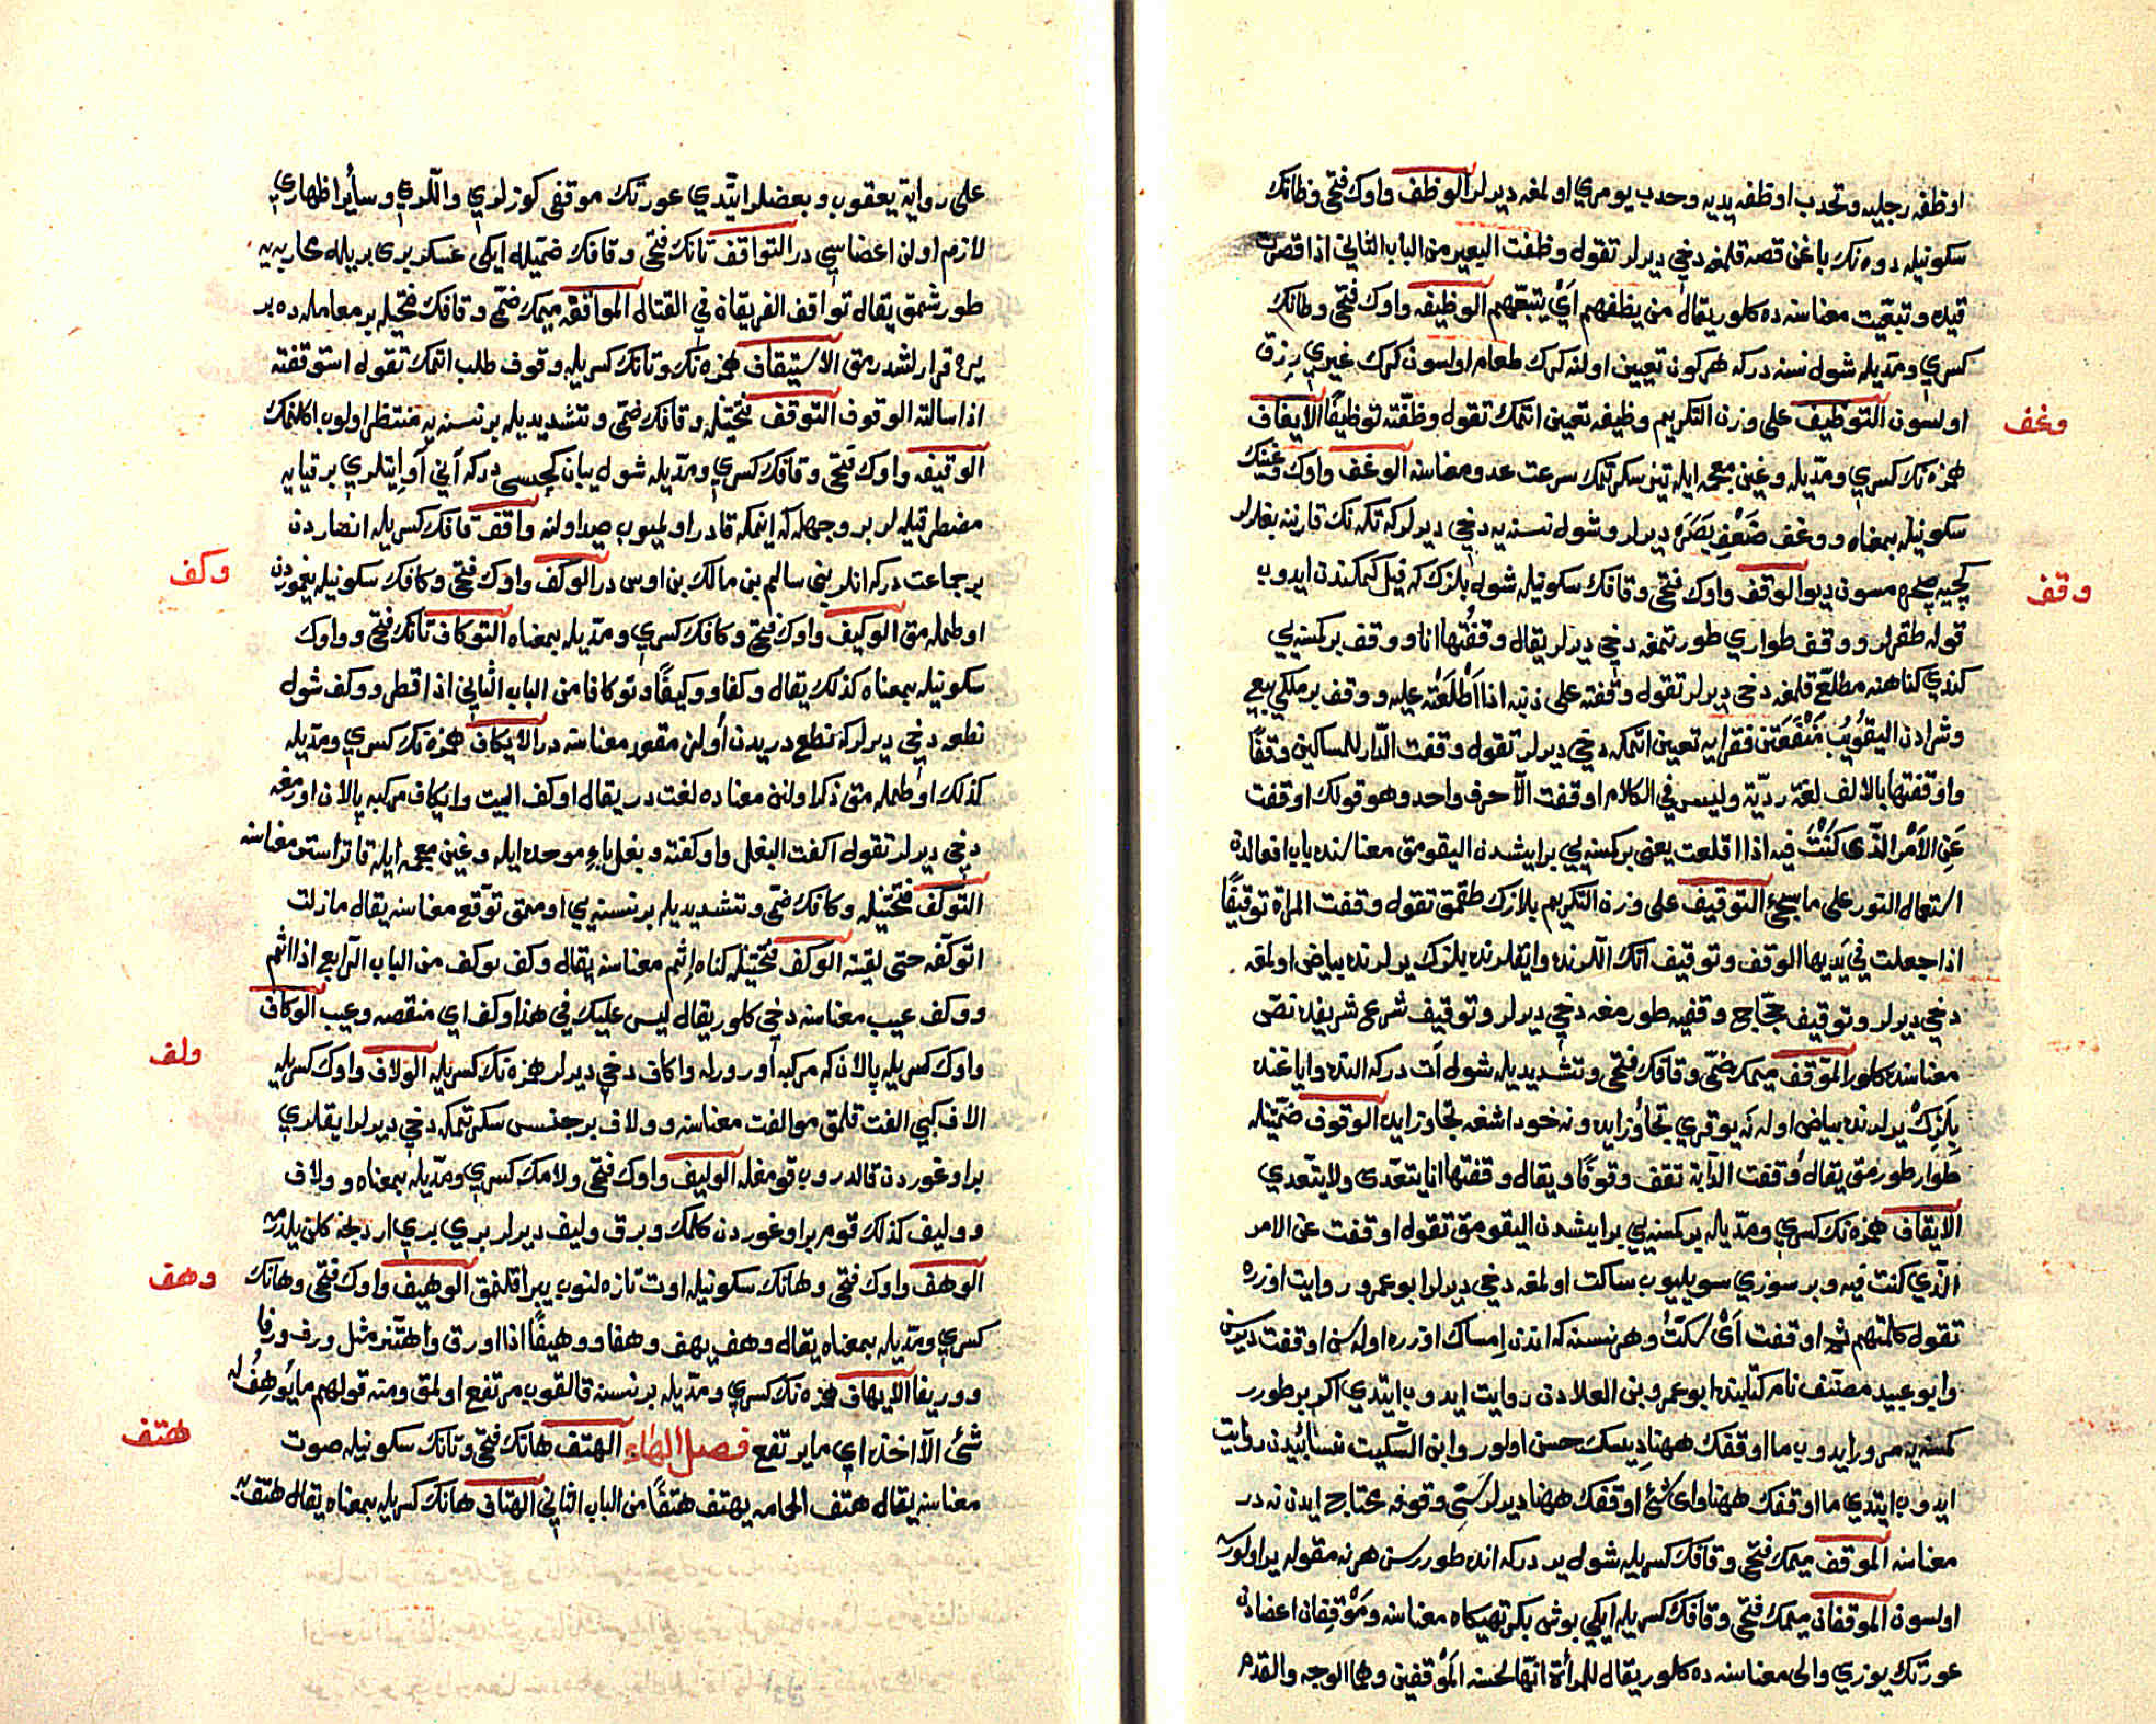 اوظفه رجليه وتحدب اوظفه يديه وحدب يومري اولمغه ديرلر الوظف واوك فتحى وظانك
سكونيله دوه نك باغن قصه قلمغه دخي ديرلر تقول وظفت البعير من الباب الثاني اذا قصرت
قيده وتبعيت معناسنه ده كلور يقال من يظفهم أي يتبعهم الوظيفه واوك فتحى وظانك
كسري ومديله شول نسنه دركه هركون تعيين اولنه كرك طعام اولسون كرك غيري رزق
وغف
اولسون التوظيف على وزن التكريم وظيفه تعيين اتمك تقول وظفته توظيفا الايغاف
همزه نك كسري ومديله وغين معجمه ايله تيز سكرتمك سرعت عدو معناسنه الوغف واوك وغينك
سكونيله بمعناه ووغف ضعف بصره ديرلر وشول نسنه يه دخي ديرلر كه تكه نك قارننه بغلرلر
وقف
كچيه مسون ديو الوقف واوك فتحى وقافك سكونيله شول بلزك كه فيل كمكندن ايدوب
قوله طقرلر ووقف طواري طورتمغه دخي ديرلر يقال وقفتها انا ووقف بركسنه يي
كندي كناهنه مطلع قلمغه دخي ديرلر تقول وقفته على ذنبه اذا اطلعته عليه ووقف بر ملكي بيع
وشرادن اليقويب منفعتن فقرايه تعيين اتمكه دخي ديرلر تقول وقفت الدار للمساكين وقفا
واوقفتها بالالف لغة ردية وليس في الكلام اوقفت الا حرف واحد وهو قولك اوقفت
عن الامر الذي كنت فيه اذا اقلعت يعني بركسنه يي بر ايشدن اليقومق معناسنده باب افعالدن
استعمال التور على ما سيجئ التوقيف على وزن التكريم بلازك طقمق تقول وقفت المراة توقيفا
اذا جعلت في يديها الوقف وتوقيف اتك اللرنده وايقلرنده بلزك يرلرنده بياض اولمغه
دخي ديرلر وتوقيف حجاج وقفيه طورمغه دخي ديرلر وتوقيف شرع شريفده نص
معناسنده كلور الموقف ميمك ضمى وقافك فتحى وتشديديله شول آت دركه النده واياغنده
بلزك يرلرنده بياض اوله نه يوقري تجاوز ايده ونه خود اشغه تجاوز ايده الوقوف ضمتيله
طوار طورمق يقال وقفت الدابة تقف وقوفا ويقال وقفتها انا يتعدى ولا يتعدي
الايقاف همزه نك كسري ومديله بركسنه يي بر ايشدن اليقومق تقول اوقفت عن الامر
الذي كنت فيه وبر سوزي سويليوب ساكت اولمغه دخي ديرلر ابو عمرو روايت اوزره
تقول كلمتهم ثم اوقفت أي سكت وهر نسنه كه اندن امساك اوزره اوله سن اوقفت ديرسن
وابو عبيد مصنف نام كتابنده ابو عمرو بن العلادن روايت ايدوب ايتدي اكر بر طورر
كمسنه يه مرور ايدوب ما اوقفك ههنا ديسك حسن اولور وابن السكيت كسائيدن روايت
ايدوب ايتدي ما اوقفك ههنا واي شئ اوقفك ههنا ديرلر سني وقوفه محتاج ايدن نه در
معناسنه الموقف ميمك فتحى وقافك كسريله شول يردركه انده طوررسن هر نه مقوله ير اولورسه
اولسون الموقفان ميمك فتحى وقافك كسريله ايكي بوش بكر تهيكاه معناسنه وموقفان اعضادن
عورتك يوزي والى معناسنه ده كلور يقال للمرأة انها لحسنه الموقفين وهما الوجه والقدم
على رواية يعقوب وبعضلر ايتدي عورتك موقفى كوزلري واللري وسائر اظهاري
لازم اولن اعضاسي در التواقف تانك فتحى وقافك ضميله ايكى عسكر بري بريله محاربه يه
طورشمق يقال تواقف الفريقان في القتال الموافقه ميمك ضمى وقافك فتحيله بر معامله ده بر
يره قرارلشدرمق الاستيقاف همزه نك وتانك كسريله وقوف طلب اتمك تقول استوقفته
اذا سالته الوقوف التوقف فتحتيله وقافك ضمى وتشديديله بر نسنه يه منتظر اولوب اكلنمك
الوقيفه واوك فتحى وقافك كسري ومديله شول يبان كچيسي دركه آني آو ايتلري بر قيايه
مضطر قيله لر بر وجهله كه اينمكه قادر اولميوب صيد اولنه واقف قافك كسريله انصاردن
وكف
بر جماعت دركه انلر بني سالم بن مالك بن اوس در الوكف واوك فتحى وكافك سكونيله يغموردن
اوطمله مق الوكيف واوك فتحى وكافك كسري ومديله بمعناه التوكاف تانك فتحى وواوك
سكونيله بمعناه كذلك يقال وكفا ووكيفا وتوكافا من الباب الثاني اذا قطر ووكف شول
نطعه دخي ديرلر كه نطع دريدن اولن مقوله معناسنه در الايكاف همزه نك كسري ومديله
كذلك اوطمله مق ذكر اولنن معناده لغت در يقال اوكف البيت وايكاف مركبه پالان اورمغه
دخي ديرلر تقول آكفت البغل واوكفته وبغل باء موحده ايله وغين معجمه ايله قاتر استر معناسنه
التوكف فتحتيله وكافك ضمى وتشديديله بر نسنه يي اومق توقع معناسنه يقال مازلت
اتوكفه حتى لقيته الوكف فتحتيله كناه إثم معناسنه يقال وكف يوكف من الباب الرابع اذا اثم
ووكف عيب معناسنه دخي كلور يقال ليس عليك في هذا وكف اي منقصه وعيب الوكاف
ولف
واوك كسريله پالان كه مركبه اورورلر واكاف دخي ديرلر همزه نك كسريله الولاف واوك كسريله
الاف كبي الفت قلمق موالفت معناسنه وولاف بر جنس سكرتمكه دخي ديرلر ايقلري
بر اوغوردن قالدروب قومغله الوليف واوك فتحى ولامك كسري ومديله بمعناه وولاف
ووليف كذلك قوم بر اوغوردن كلمك وبرق وليف ديرلر بري بري اردنجه كلن يلدرمه
وهف
الوهف واوك فتحى وهانك سكونيله اوت تازه لنوب يپراقلنمق الوهيف واوك فتحى وهانك
كسري ومديله بمعناه يقال وهف يهف وهفا ووهيفا اذا اورق واهتز مثل ورف ورفا
ووريفا الايهاف همزه نك كسري ومديله بر نسنه قالقوب مرتفع اولمق ومنه قولهم ما يوهف له
هتف
شئ الا اخذه اي ما يرتفع فصل الهاء الهتف هانك فتحى وتانك سكونيله صوت
معناسنه يقال هتف الحمامه يهتف هتفا من الباب الثاني الهتاف هانك كسريله بمعناه يقال هتف به